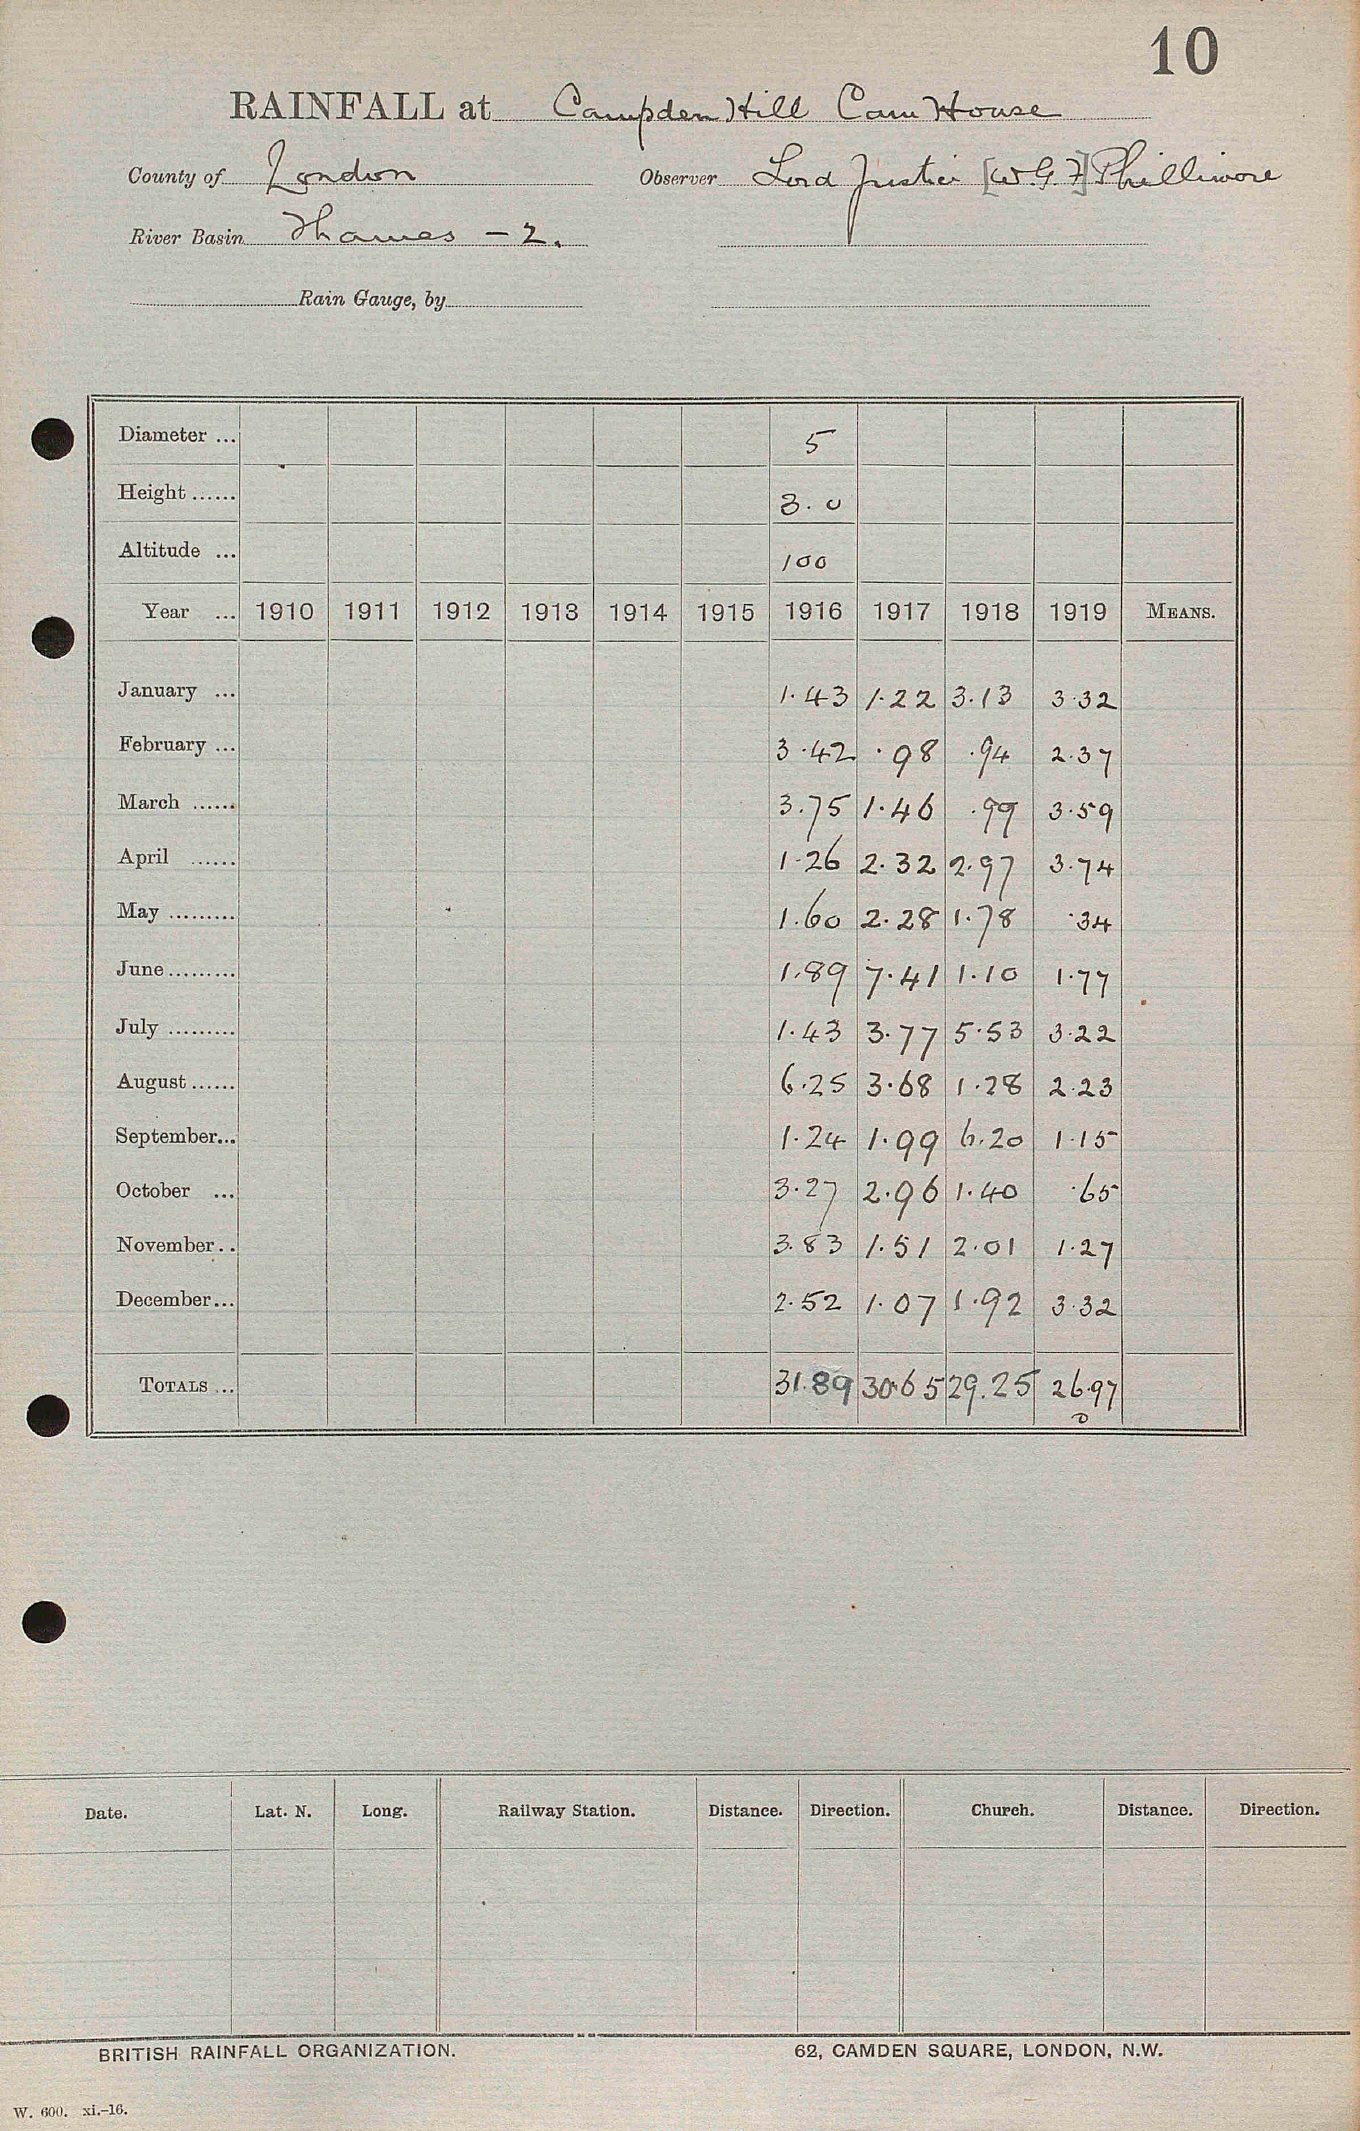 10
RAINFALL at Campden Hill Cam House
County of London Observer Lord Justice [W.G.F] Phillimore
River Basin Thames - 2.
Rain Gauge, by
Diameter ... 5
Height ...... 3.0
Altitude ... 100
Year ... 1910 1911 1912 1913 1914 1915 1916 1917 1918 1919 MEANS.
January ... 1.43 1.22 3.13 3.32
February ... 3.42 .98 .94 2.37
March ...... 3.75 1.46 .99 3.59
April ...... 1.26 2.32 2.97 3.74
May ......... 1.60 2.28 1.78 .34
June ......... 1.89 7.41 1.10 1.77
July ......... 1.43 3.77 5.53 3.22
August ...... 6.25 3.68 1.28 2.23
September... 1.24 1.99 6.20 1.15
October ... 3.27 2.96 1.40 .65
November.. 3.83 1.51 2.01 1.27
December... 2.52 1.07 1.92 3.32
TOTALS ... 31.89 30.65 29.25 26.97
Date. Lat. N. Long. Railway Station. Distance. Direction. Church. Distance. Direction.
BRITISH RAINFALL ORGANIZATION. 62, CAMDEN SQUARE, LONDON, N.W.
W. 600. xi.-16.